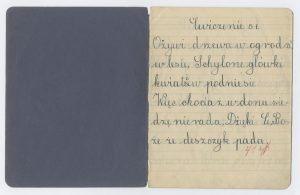 Ćwiczenie 54.
Ożywi drzewa w ogrodzi
w lesie, Schylone główki
kwiatów podniesie
Więc chociaż w domu sie-
dzę nierada, Dzięki Ci, Bo-
że że deszczyk pada.